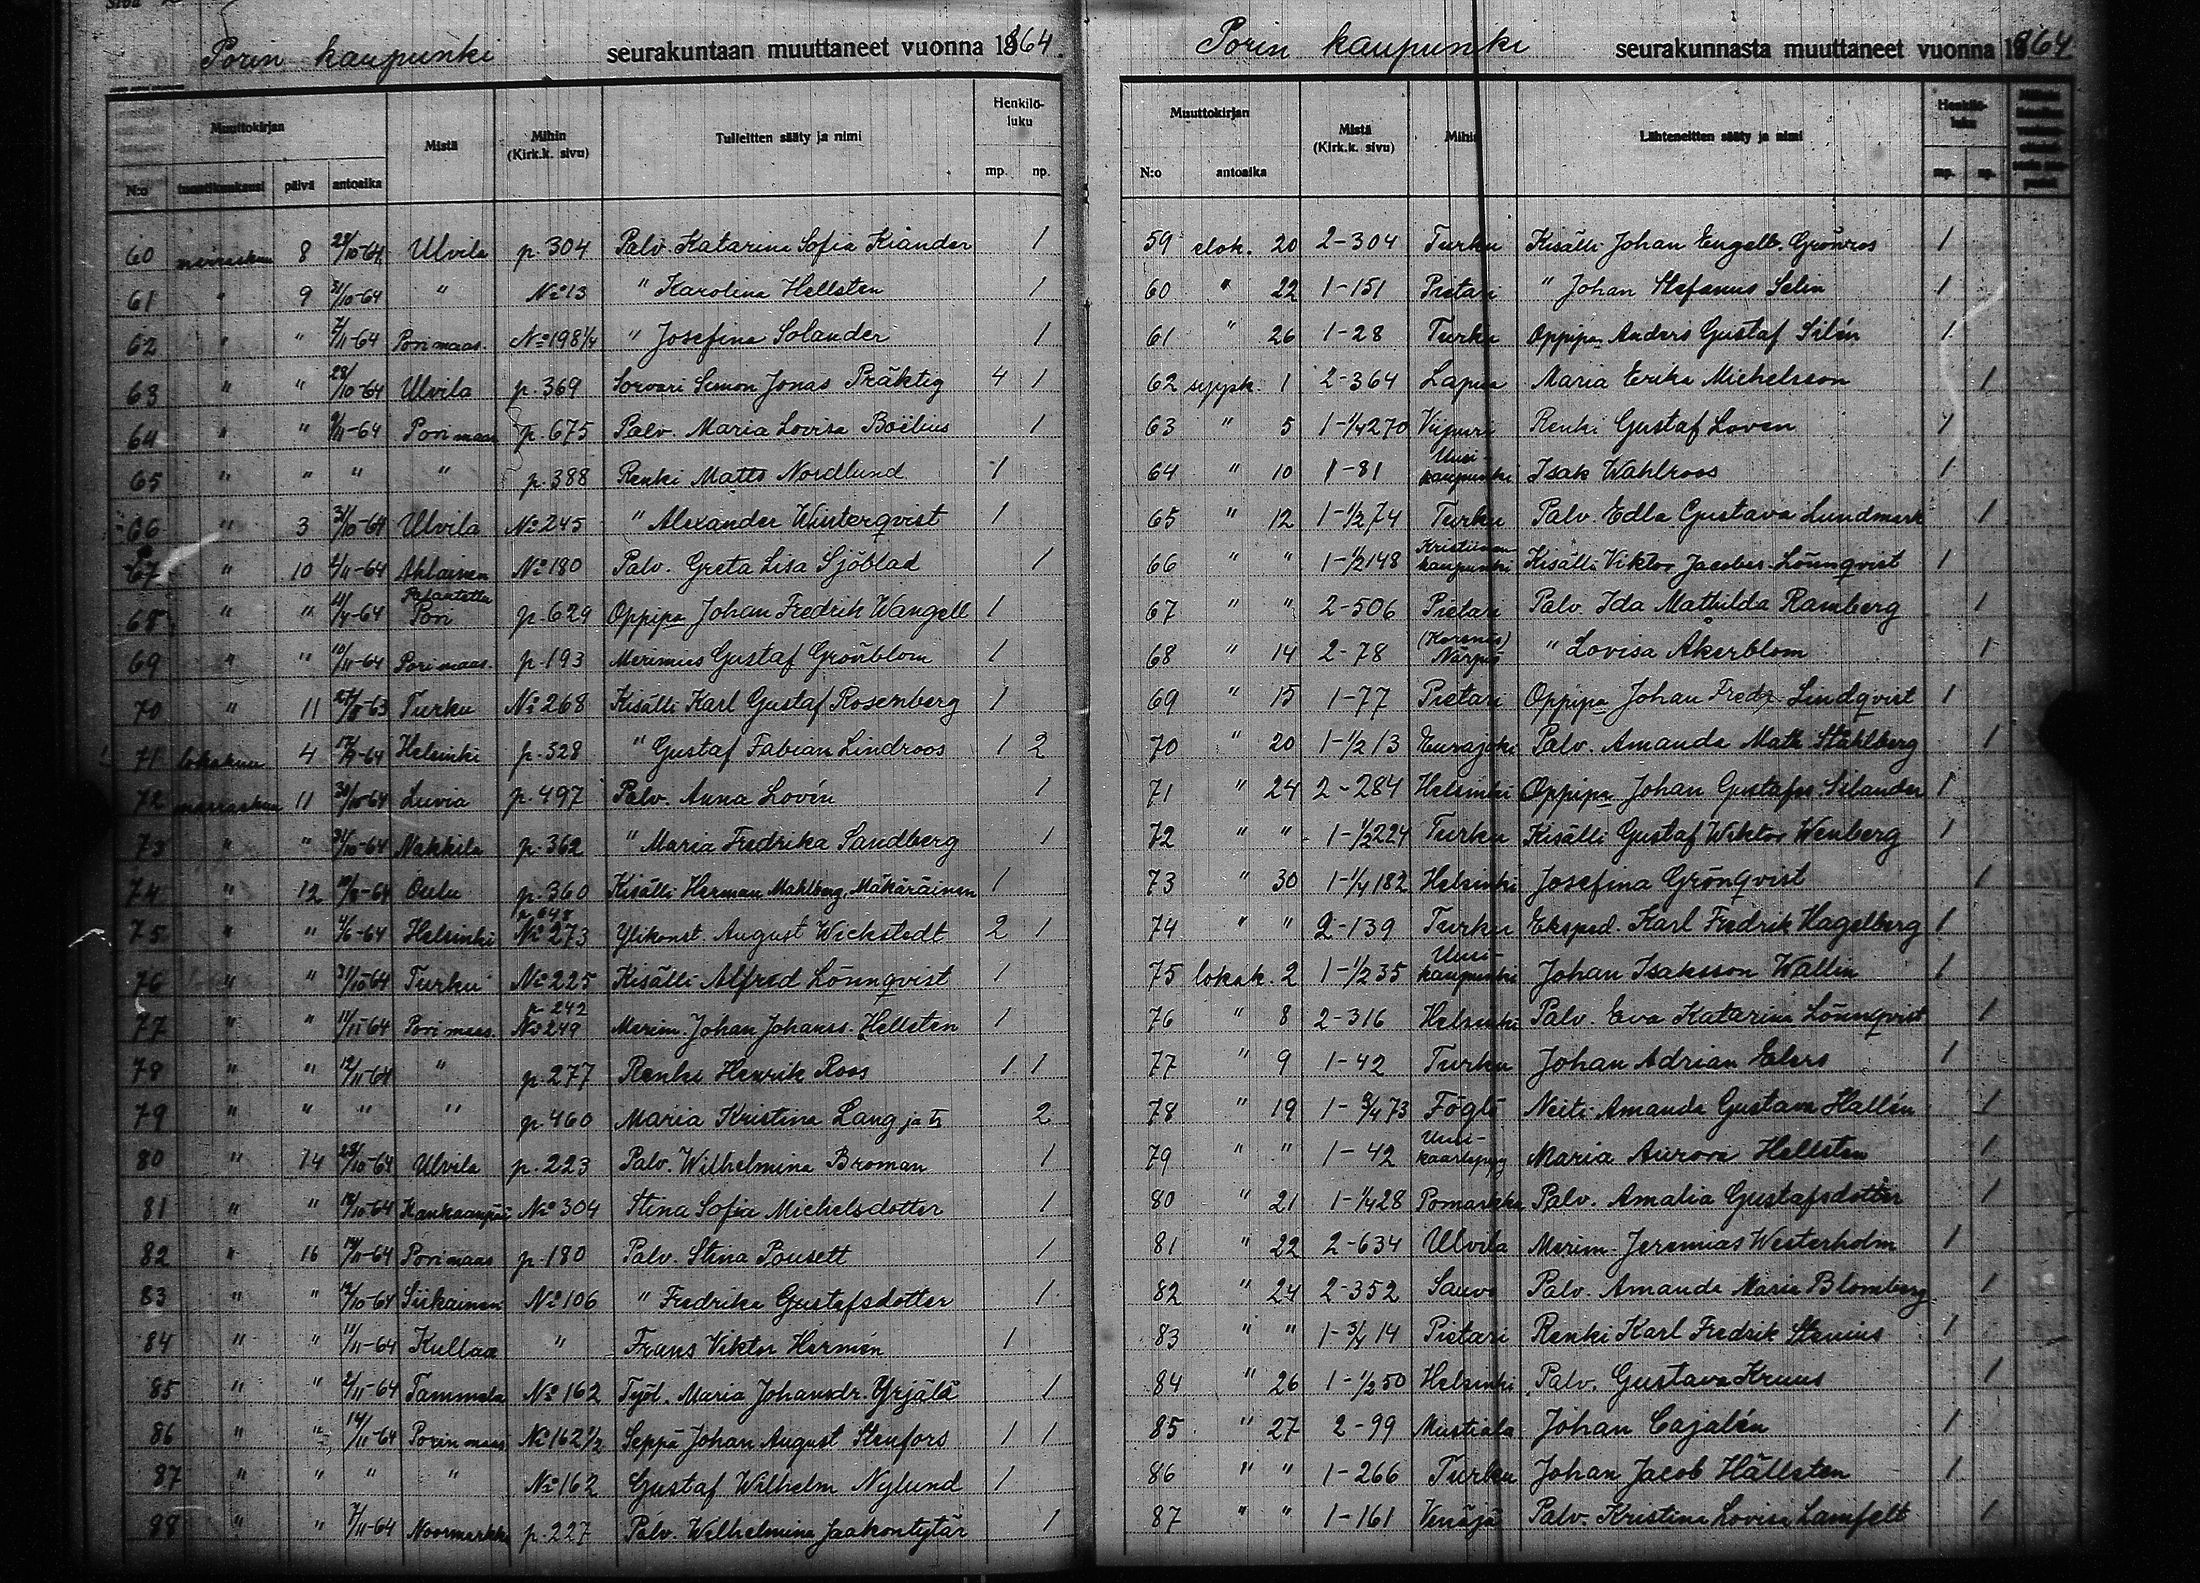 Porin kaupunki seurakuntaan muuttaneet vuonna 1864.
Muuttokirjan Mistä Mihin (Kirk.k. sivu) Tulleitten sääty ja nimi Henkilö-luku
N:o tuontikuukausi päivä antoaika mp. np.
60 marraskuu 8 28/10-64 Ulvila p. 304 Palv. Katarina Sofia Kiander 1
61 " 9 31/10-64 " No 13 " Karolina Hellsten 1
62 " " 7/11-64 Pori maas. No 198 1/4 " Josefina Solander 1
63 " " 28/10-64 Ulvila p. 369 Sorvari Simon Jonas Präktig 4 1
64 " " 9/11-64 Pori maas p. 675 Palv. Maria Lovisa Boëlius 1
65 " " " " p. 388 Renki Matts Nordlund 1
66 " 3 31/10-64 Ulvila No 245 " Alexander Winterqvist 1
67 " 10 6/11-64 Ahlainen No 180 Palv. Greta Lisa Sjöblad 1
68 " " Pori p. 629 Oppipa Johan Fredrik Wangell 1
69 " " 10/11-64 Pori maas. p. 193 Merimies Gustaf Grönblom 1
70 " 11 Turku No 268 Kisälli Karl Gustaf Rosenberg 1
71 lokakuu 4 Helsinki p. 528 " Gustaf Fabian Lindroos 1 2
72 marraskuu 11 30/10-64 Luvia p. 497 Palv. Anna Lovin 1
73 " " 31/10-64 Nakkila p. 362 " Maria Fredrika Sandberg 1
74 " 12 Oulu p. 360 Kisälli Herman Mahlberg, Mäkäräinen 1
75 " " 4/6-64 Helsinki p. 648 No 273 Ylikonst. August Wickstedt 2 1
76 " " 31/10-64 Turku No 225 Kisälli Alfred Lönnqvist 1
77 " " 11/11-64 Pori maas. p. 242 No 249 Merim. Johan Johanss. Hellsten 1
78 " " 12/11-64 " p. 277 Renki Henrik Roos 1 1
79 " " " " p. 460 Maria Kristina Lang ja tr 2
80 " 14 28/10-64 Ulvila p. 223 Palv. Wilhelmina Broman 1
81 " " Kankaanpää No 304 Stina Sofia Michelsdotter 1
82 " 16 14/11-64 Pori maas p. 180 Palv. Stina Pousett 1
83 " " 12/10-64 Siikainen No 106 " Fredrika Gustafsdotter 1
84 " " 11/11-64 Kullaa " Frans Viktor Hermén 1
85 " " 2/11-64 Tammela No 162 Työl. Maria Johansdr. Yrjälä 1
86 " " 14/11-64 Porin maas No 162 1/2 Seppä Johan August Stenfors 1 1
87 " " " " No 162 Gustaf Wilhelm Nylund 1
88 " " 7/11-64 Noormarkku p. 227 Palv. Wilhelmina Jaakontytär 1
Porin kaupunki seurakunnasta muuttaneet vuonna 1864
Muuttokirjan Mistä (Kirk.k. sivu) Mihin Lähteneitten sääty ja nimi Henkilö-luku
N:o antoaika mp. np.
59 elok. 20 2-304 Turku Kisälli Johan Engelb. Grönros 1
60 " 22 1-151 Pietari " Johan Stefanus Selin 1
61 " 26 1-28 Turku Oppipa Anders Gustaf Silén 1
62 syysk. 1 2-364 Lapua Maria Erika Michelsson 1
63 " 5 1-1/4 270 Viipuri Renki Gustaf Loven 1
64 " 10 1-81 Uusi-kaupunki Isak Wahlroos 1
65 " 12 1-1/2 74 Turku Palv. Edla Gustava Lundmark 1
66 " " 1-1/2 148 Kristiinan kaupunki Kisälli Viktor Jacobus Lönnqvist 1
67 " " 2-506 Pietari Palv. Ida Mathilda Ramberg 1
68 " 14 2-78 (Korsnäs) Närpiö " Lovisa Åkerblom 1
69 " 15 1-77 Pietari Oppipa Johan Fredr. Lindqvist 1
70 " 20 1-1/2 13 Eurajoki Palv. Amanda Math. Ståhlberg 1
71 " 24 2-284 Helsinki Oppipa Johan Gustafss Silander 1
72 " " 1-1/2 224 Turku Kisälli Gustaf Wiktor Wenberg 1
73 " 30 1-1/4 182 Helsinki Josefina Grönqvist 1
74 " " 2-139 Turku Eksped. Karl Fredrik Hagelberg 1
75 lokak. 2 1-1/2 35 Uusi-kaupunki Johan Isaksson Wallin 1
76 " 8 2-316 Helsinki Palv. Eva Katarina Lönnqvist 1
77 " 9 1-42 Turku Johan Adrian Elers 1
78 " 19 1-3/4 73 Föglö Neiti Amanda Gustava Hallén 1
79 " " 1-42 Uusi-kaarlepyy Maria Aurora Hellsten 1
80 " 21 1-1/4 28 Pomarkku Palv. Amalia Gustafsdotter 1
81 " 22 2-634 Ulvila Merim. Jeremias Westerholm 1
82 " 24 2-352 Sauvo Palv. Amanda Maria Blomberg 1
83 " " 1-3/4 14 Pietari Renki Karl Fredrik Stenius 1
84 " 26 1-1/2 50 Helsinki Palv. Gustava Kruus 1
85 " 27 2-99 Mustiala Johan Cajalén 1
86 " " 1-266 Turku Johan Jacob Hällsten 1
87 " " 1-161 Venäjä Palv. Kristina Lovisa Lamfelt 1